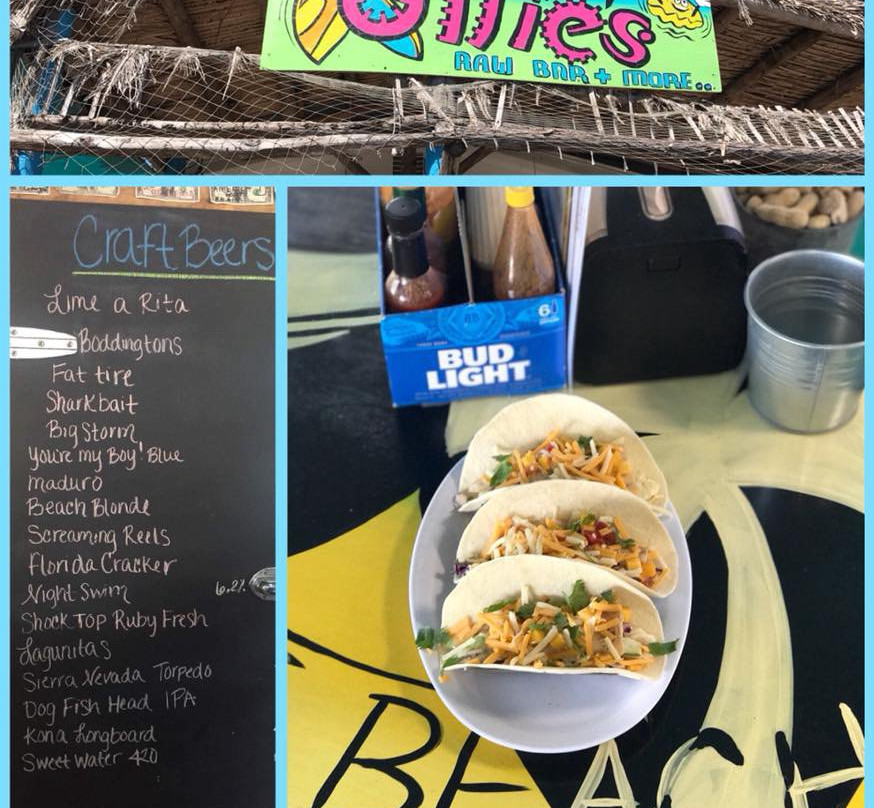 Ollies
RAW BAR + MORE..
Craft Beers
Lime a Rita
Boddingtons
Fat tire
Sharkbait
Big Storm
You're my Boy! Blue
maduro
Beach Blonde
Screaming Reels
Florida Cracker
Night Swim 6.2%
Shock Top Ruby Fresh
Lagunitas
Sierra Nevada Torpedo
Dog Fish Head IPA
Kona Longboard
Sweet Water 420
6
BUD
LIGHT
BEACH